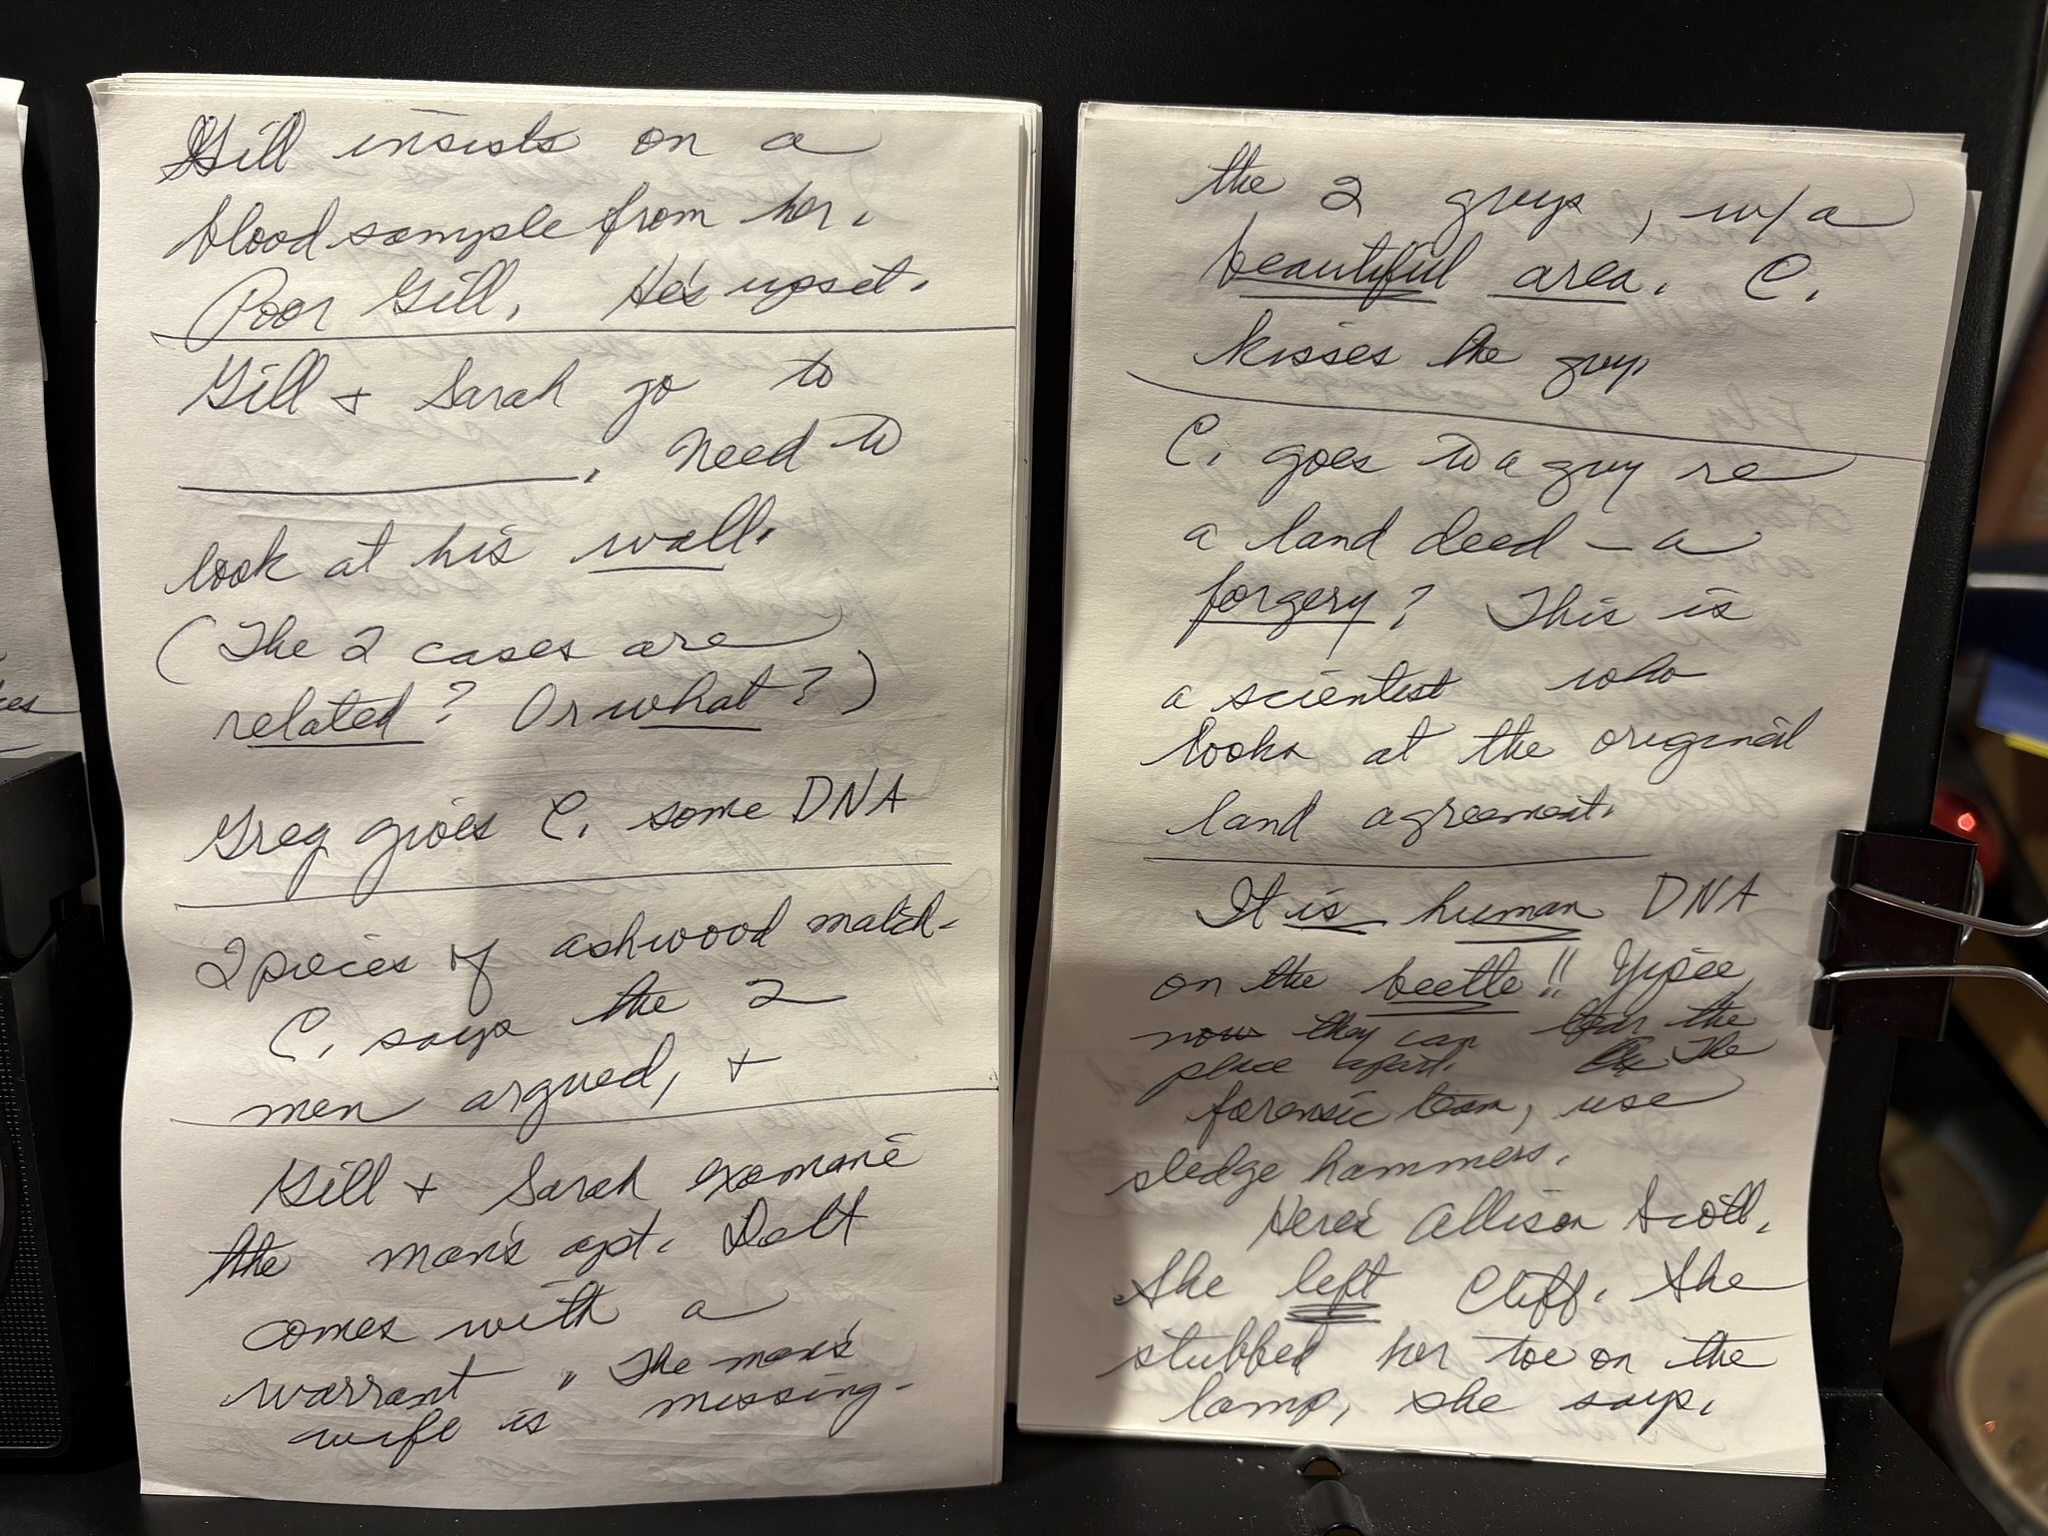 Gill insists on a
blood sample from her.
Poor Gill. He's upset.
Gill + Sarah go to
. Need to
look at his wall.
(The 2 cases are
related? Or what?)
Greg gives C. some DNA
2 pieces of ashwood match-
C. says the 2
men argued, +
Gill + Sarah examine
the man's apt. Dalt
comes with a
warrant. The man's
wife is missing.
the 2 guys, w/a
beautiful area. C.
kisses the guy.
C. goes to a guy re
a land deed - a
forgery? This is
a scientist who
looks at the original
land agreement.
It is human DNA
on the beetle!! Yipee
now they can tear the
place apart. The
forensic team, use
sledge hammers.
Here's Allison Scott.
She left Cliff. She
stubbed her toe on the
lamp, she says.